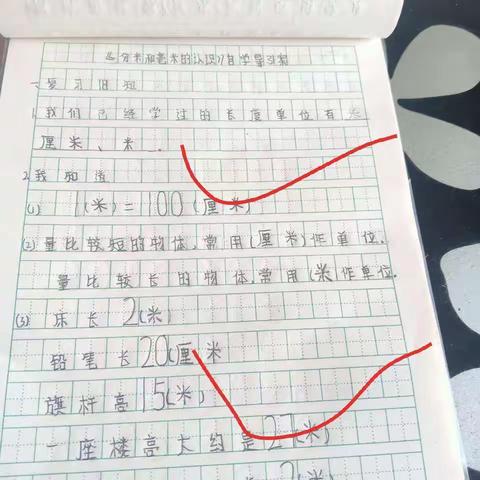 《分米和毫米的认识》自学导引案
一、复习旧知
1.我们已经学过的长度单位有
厘米、米.
2.我知道
(1) 1(米)=100(厘米)
(2)量比较短的物体,常用(厘米)作单位.
量比较长的物体,常用(米)作单位.
(3) 床长2(米)
铅笔长20(厘米
旗杆高15(米)
一座楼高大约是27(米)